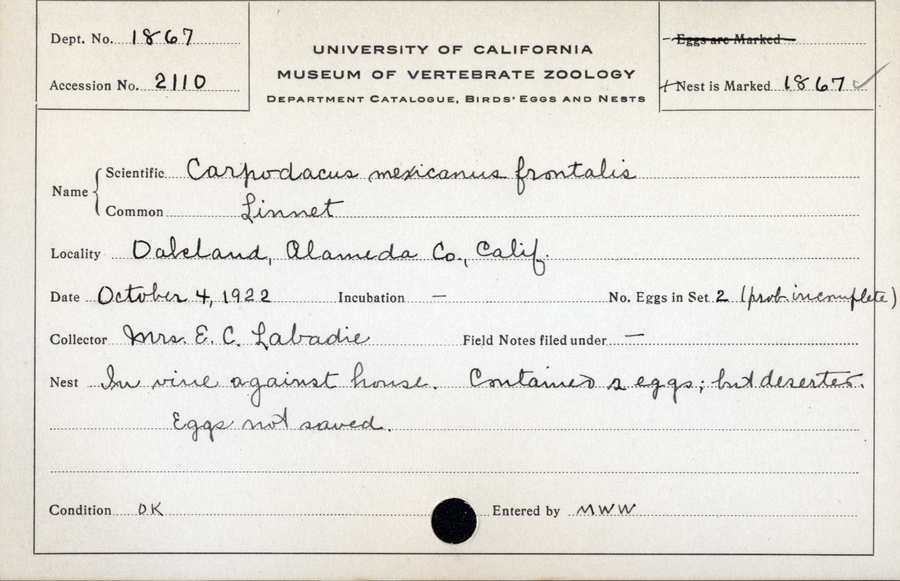 Dept. No. 1867
Accession No. 2110
UNIVERSITY OF CALIFORNIA
MUSEUM OF VERTEBRATE ZOOLOGY
DEPARTMENT CATALOGUE, BIRDS' EGGS AND NESTS
Eggs are Marked
Nest is Marked 1867 ✓
Name { Scientific Carpodacus mexicanus frontalis
Common Linnet
Locality Oakland, Alameda Co., Calif.
Date October 4, 1922 Incubation — No. Eggs in Set 2 (prob. incomplete)
Collector Mrs. E. C. Labadie Field Notes filed under —
Nest In vine against house. Contained 2 eggs; but deserted.
Eggs not saved.
Condition OK Entered by MWW